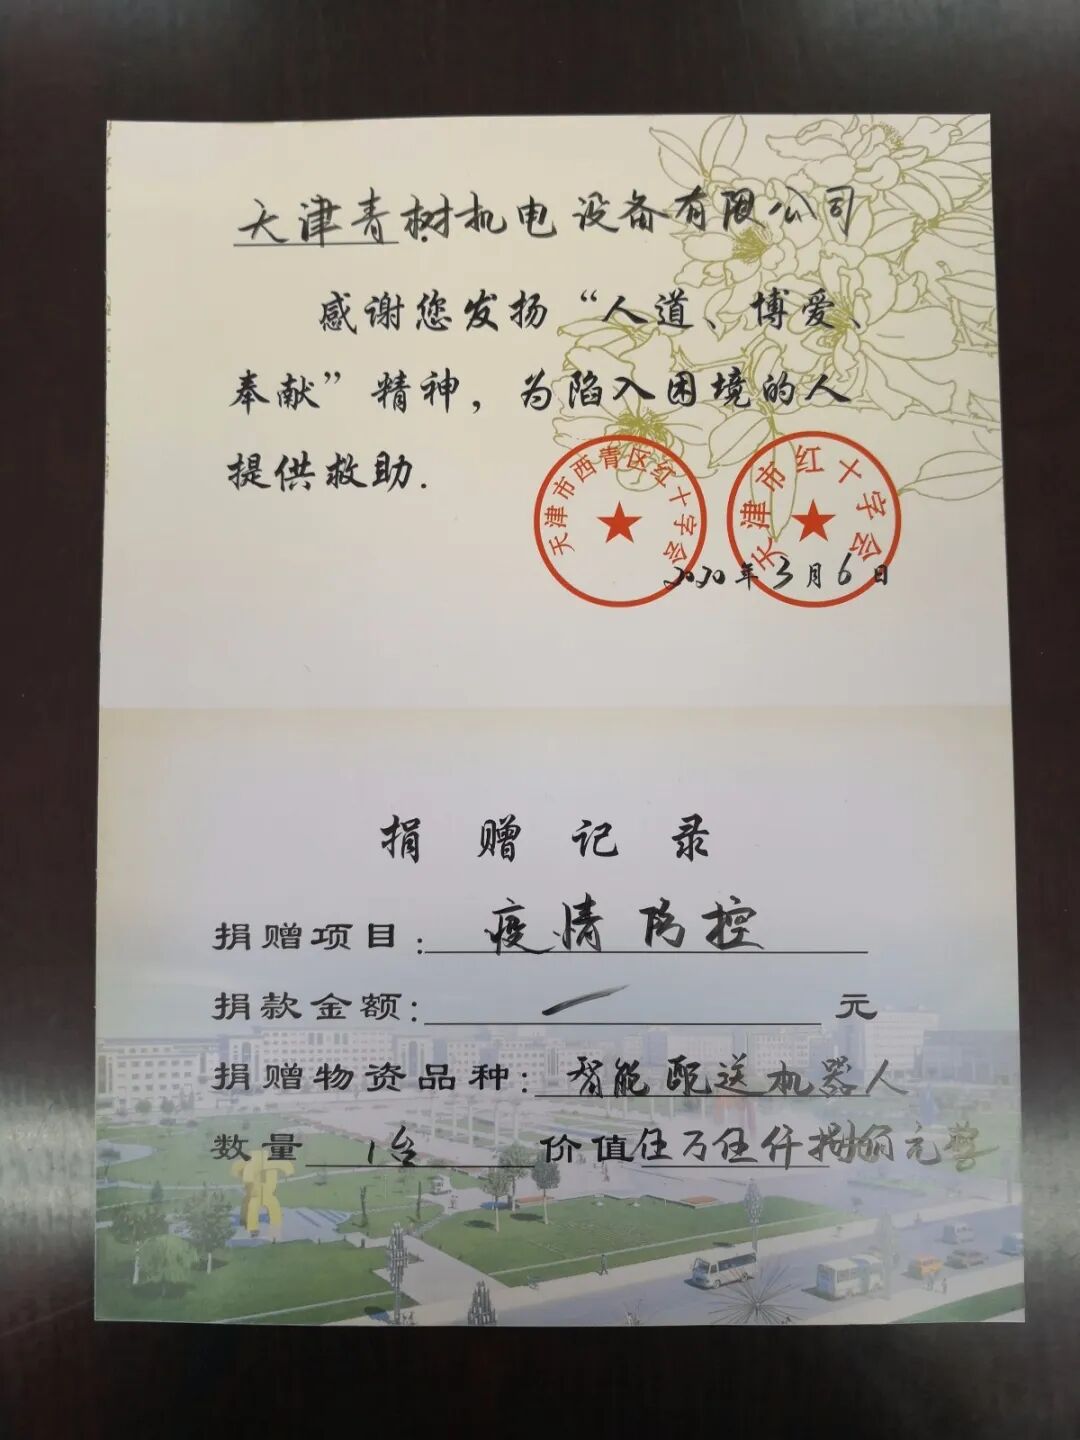 天津青树机电设备有限公司
感谢您发扬“人道、博爱、
奉献”精神，为陷入困境的人
提供救助.
天津市西青区红十字会
天津市红十字会
2020年3月6日
捐 赠 记 录
捐赠项目：疫情防控
捐款金额：一 元
捐赠物资品种：智能配送机器人
数量 1台 价值伍万伍仟捌佰元整